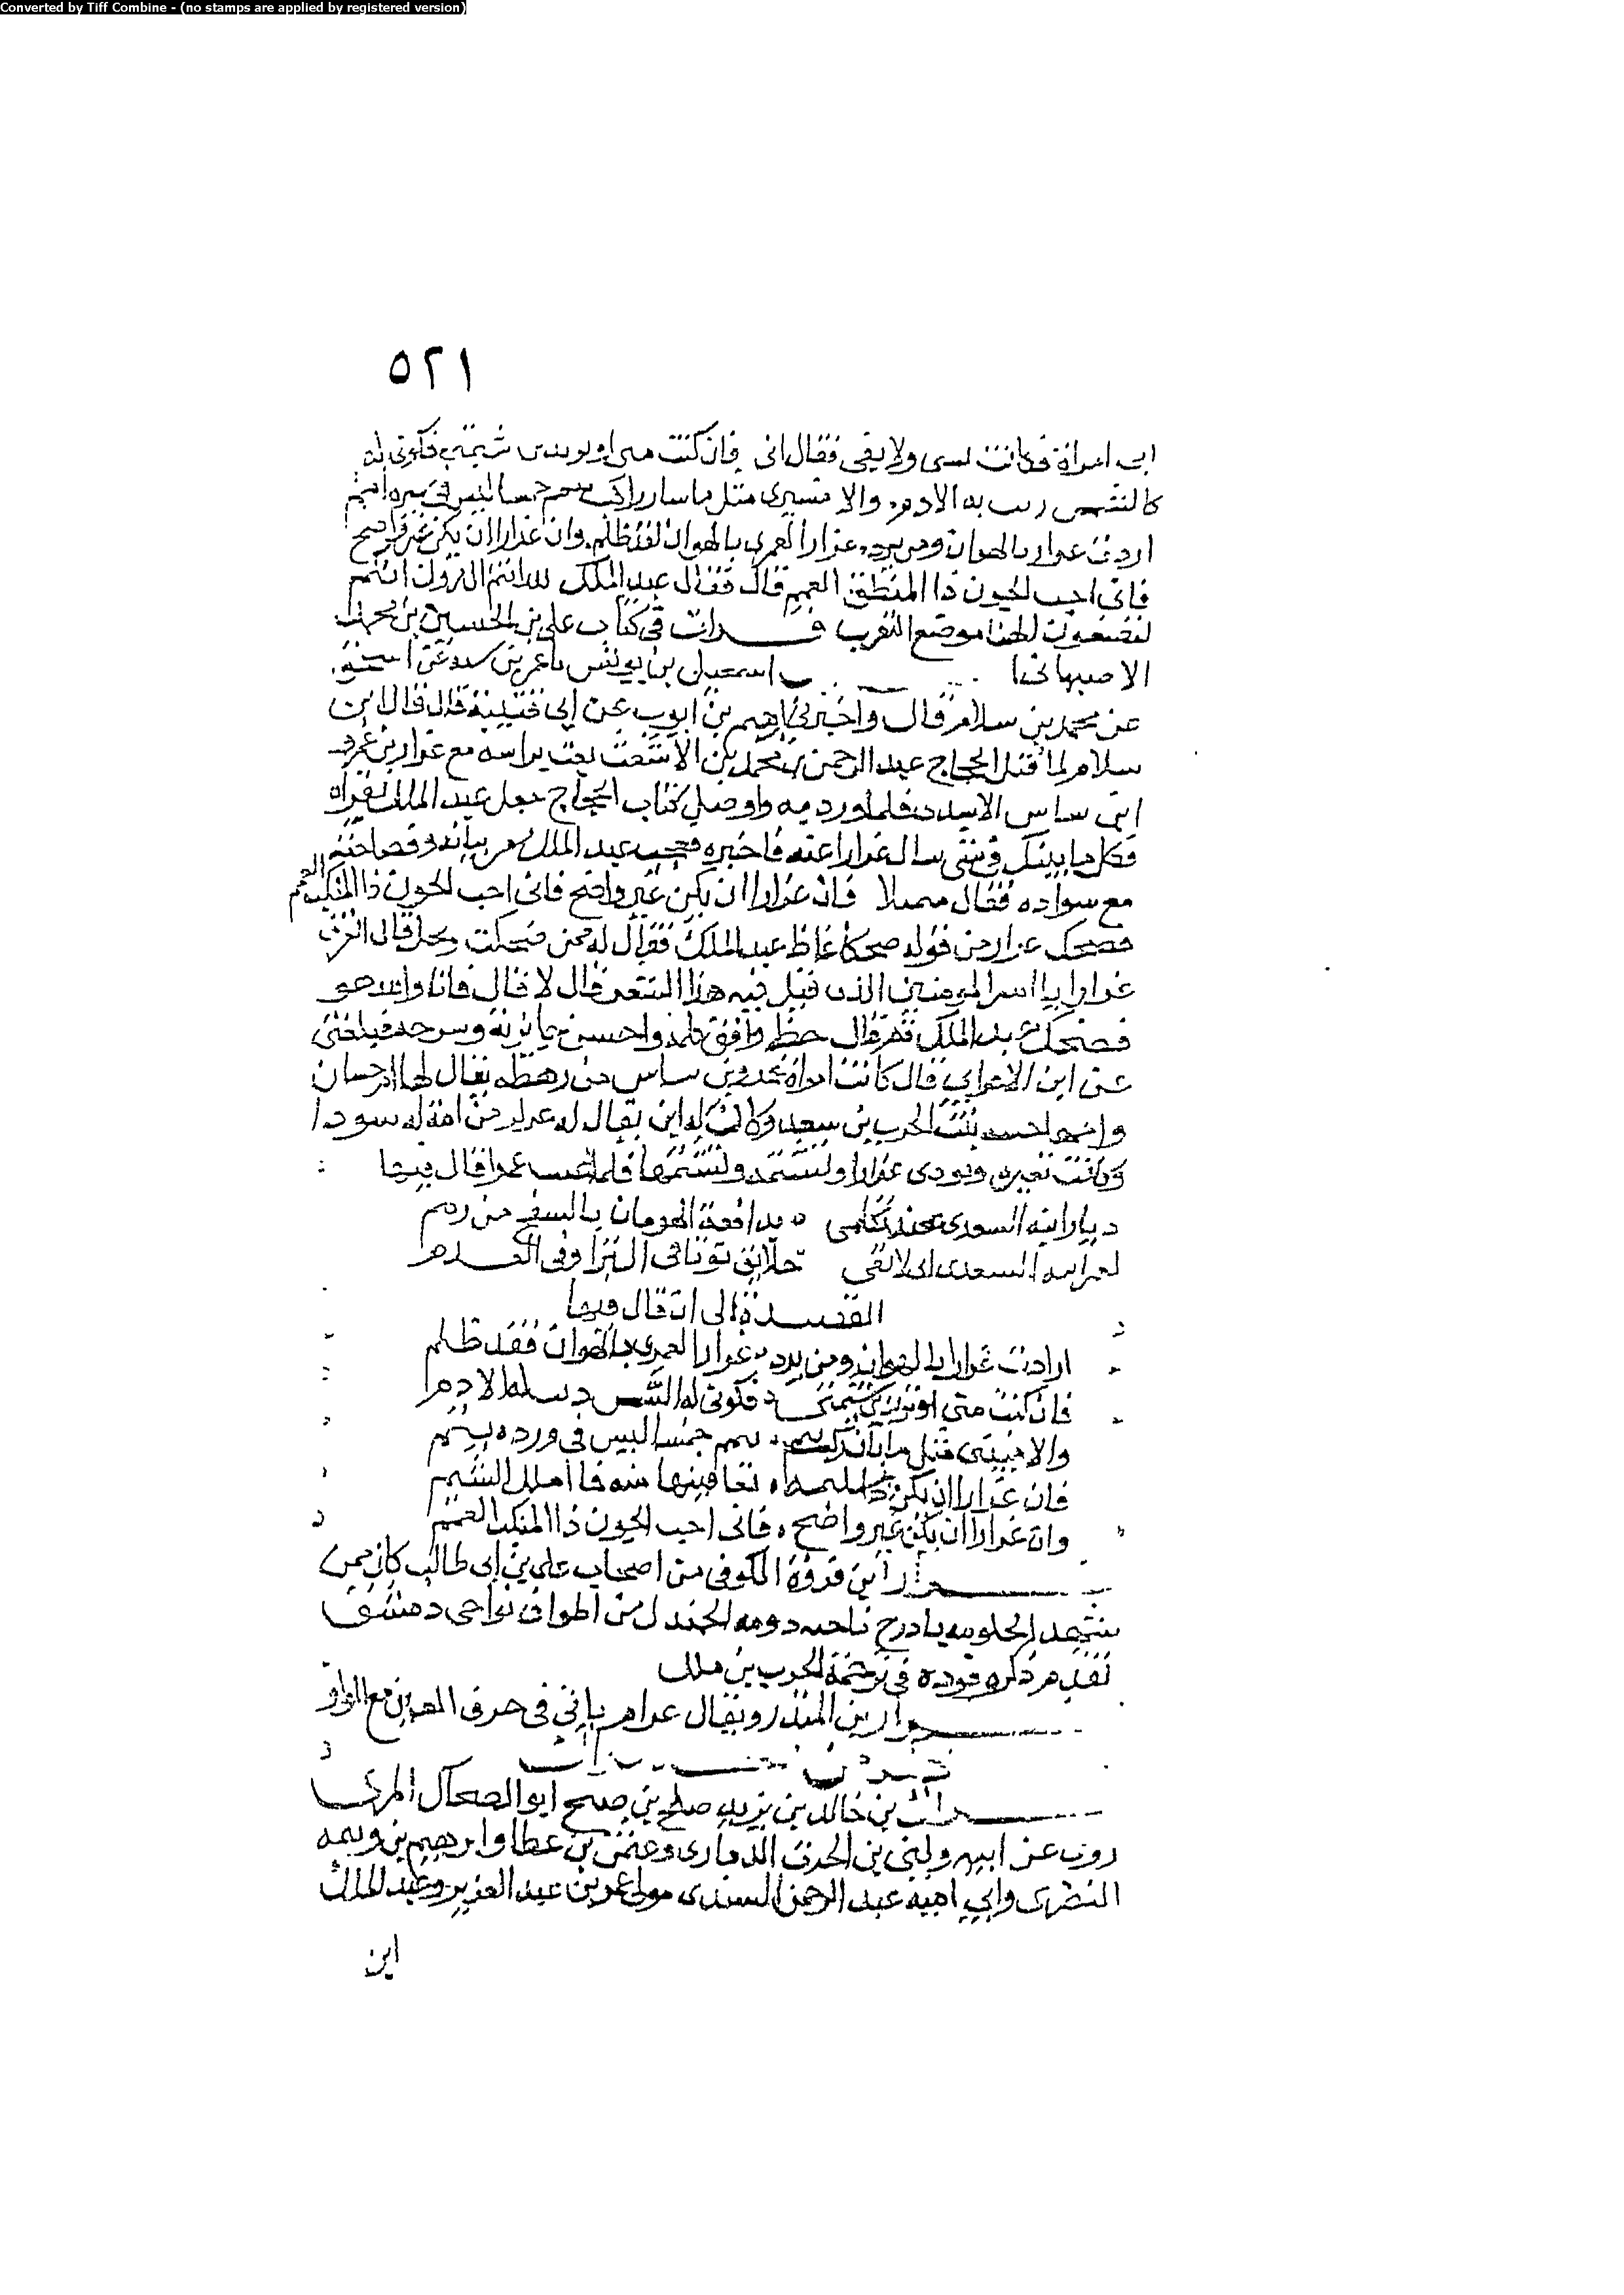 Converted by Tiff Combine - (no stamps are applied by registered version)
٥٢١
ابى امراة فكانت ولا يقى فقال انى فان كنت منى او تريدين شيمتى فكونى له
كالشمس ربت به الادم والا فسيرى مثل ما سار راكب ليس فى سيره امم
اردت عرارا بالهوان ومن يرد عرارا لعمرى بالهوان لقد ظلم وان عرارا ان يكن غير واضح
فانى احب الجون ذا المنطق العمم قال فقال عبد الملك لله انتم
موضع قرات فى كتاب على بن الحسين بن محمد
الاصبهانى اسمعيل بن يونس نا عمر بن عن اسحق
عن محمد بن سلام قال واخبرنى ابرهيم بن ايوب عن ابى قتيبة قال قال ابن
سلام لما قتل الحجاج عبد الرحمن بن محمد بن الاشعث بعث براسه مع عرار بن عمرو
ابن ساس الاسدى فلما ورد به واوصل كتاب الحجاج جعل عبد الملك يقراه
فكل ما يشك فى شى سال عرارا عنه فاخبره فعجب عبد الملك من بيانه وفصاحته
مع سواده فقال متمثلا فان عرارا ان يكن غير واضح فانى احب الجون ذا المنكب العمم
فضحك عرار من قوله ضحكا غاظ عبد الملك فقال له مم ضحكت ويحك قال اتعرف
عرارا يا امير المومنين الذى قيل فيه هذا الشعر قال لا قال فانا والله هو
فضحك عبد الملك ثم قال حظ وافق كلمة واحسن جائزته وسرحه فبلغنى
عن ابن الاعرابى قال كانت امراة عمرو بن ساس من رهطه يقال لها ام حسان
واسمها بنت الحرب بن سعد وكان له ابن يقال له عرار من امة له سودا
وكانت تعيره وتوذى عرارا وتشتمه ويشتمها فلما عمرا قال فيها
ديار ابنة السعدى هند تكلمى بدافعة الحومان بالسفح من رمم
لعمر ابنة السعدى انى لاتقى خلائق توتا فى الثرا وفى الكرم
القصيدة الى ان قال فيها
ارادت عرارا بالهوان ومن يرد عرارا لعمرى بالهوان فقد ظلم
فان كنت منى او تريدين شيمتى فكونى له الادم
والا فبينى مثل ما بان راكب خمسا ليس فى ورده يتم
فان عرارا ان يكن ذا تعافينها منه فما املك الشيم
وان عرارا ان يكن غير واضح فانى احب الجون ذا المنكب العمم
عرار ابن فروة الكوفى من اصحاب على بن ابى طالب كان ممن
شهد الحكومة باذرح ناحية دومة الجندل من اطراف نواحى دمشق
تقدم ذكره فى ترجمة الحرب بن ملك
عرار بن المنذر ويقال عرام ياتى فى حرف العين مع الواو
عراك بن خالد بن يزيد صلح بن صبيح ابو الضحاك المرى
روى عن ابيه ويحيى بن الحرث الذمارى وعثمن بن عطا وابرهيم بن وثيمة
النصرى وابى امية عبد الرحمن السندى مولى عمر بن عبد العزيز وعبد الملك
ابن